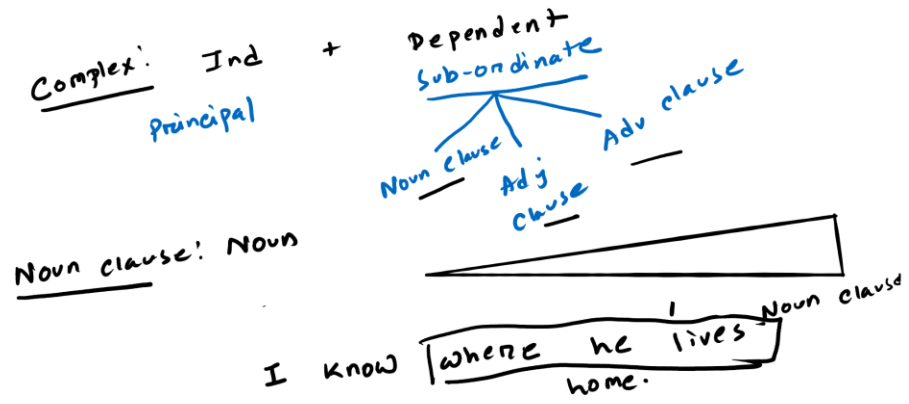 Complex: Ind + Dependent
Principal Sub-ordinate
Noun clause Adj clause Adv clause
Noun clause: Noun
Noun clause
I know where he lives
home.